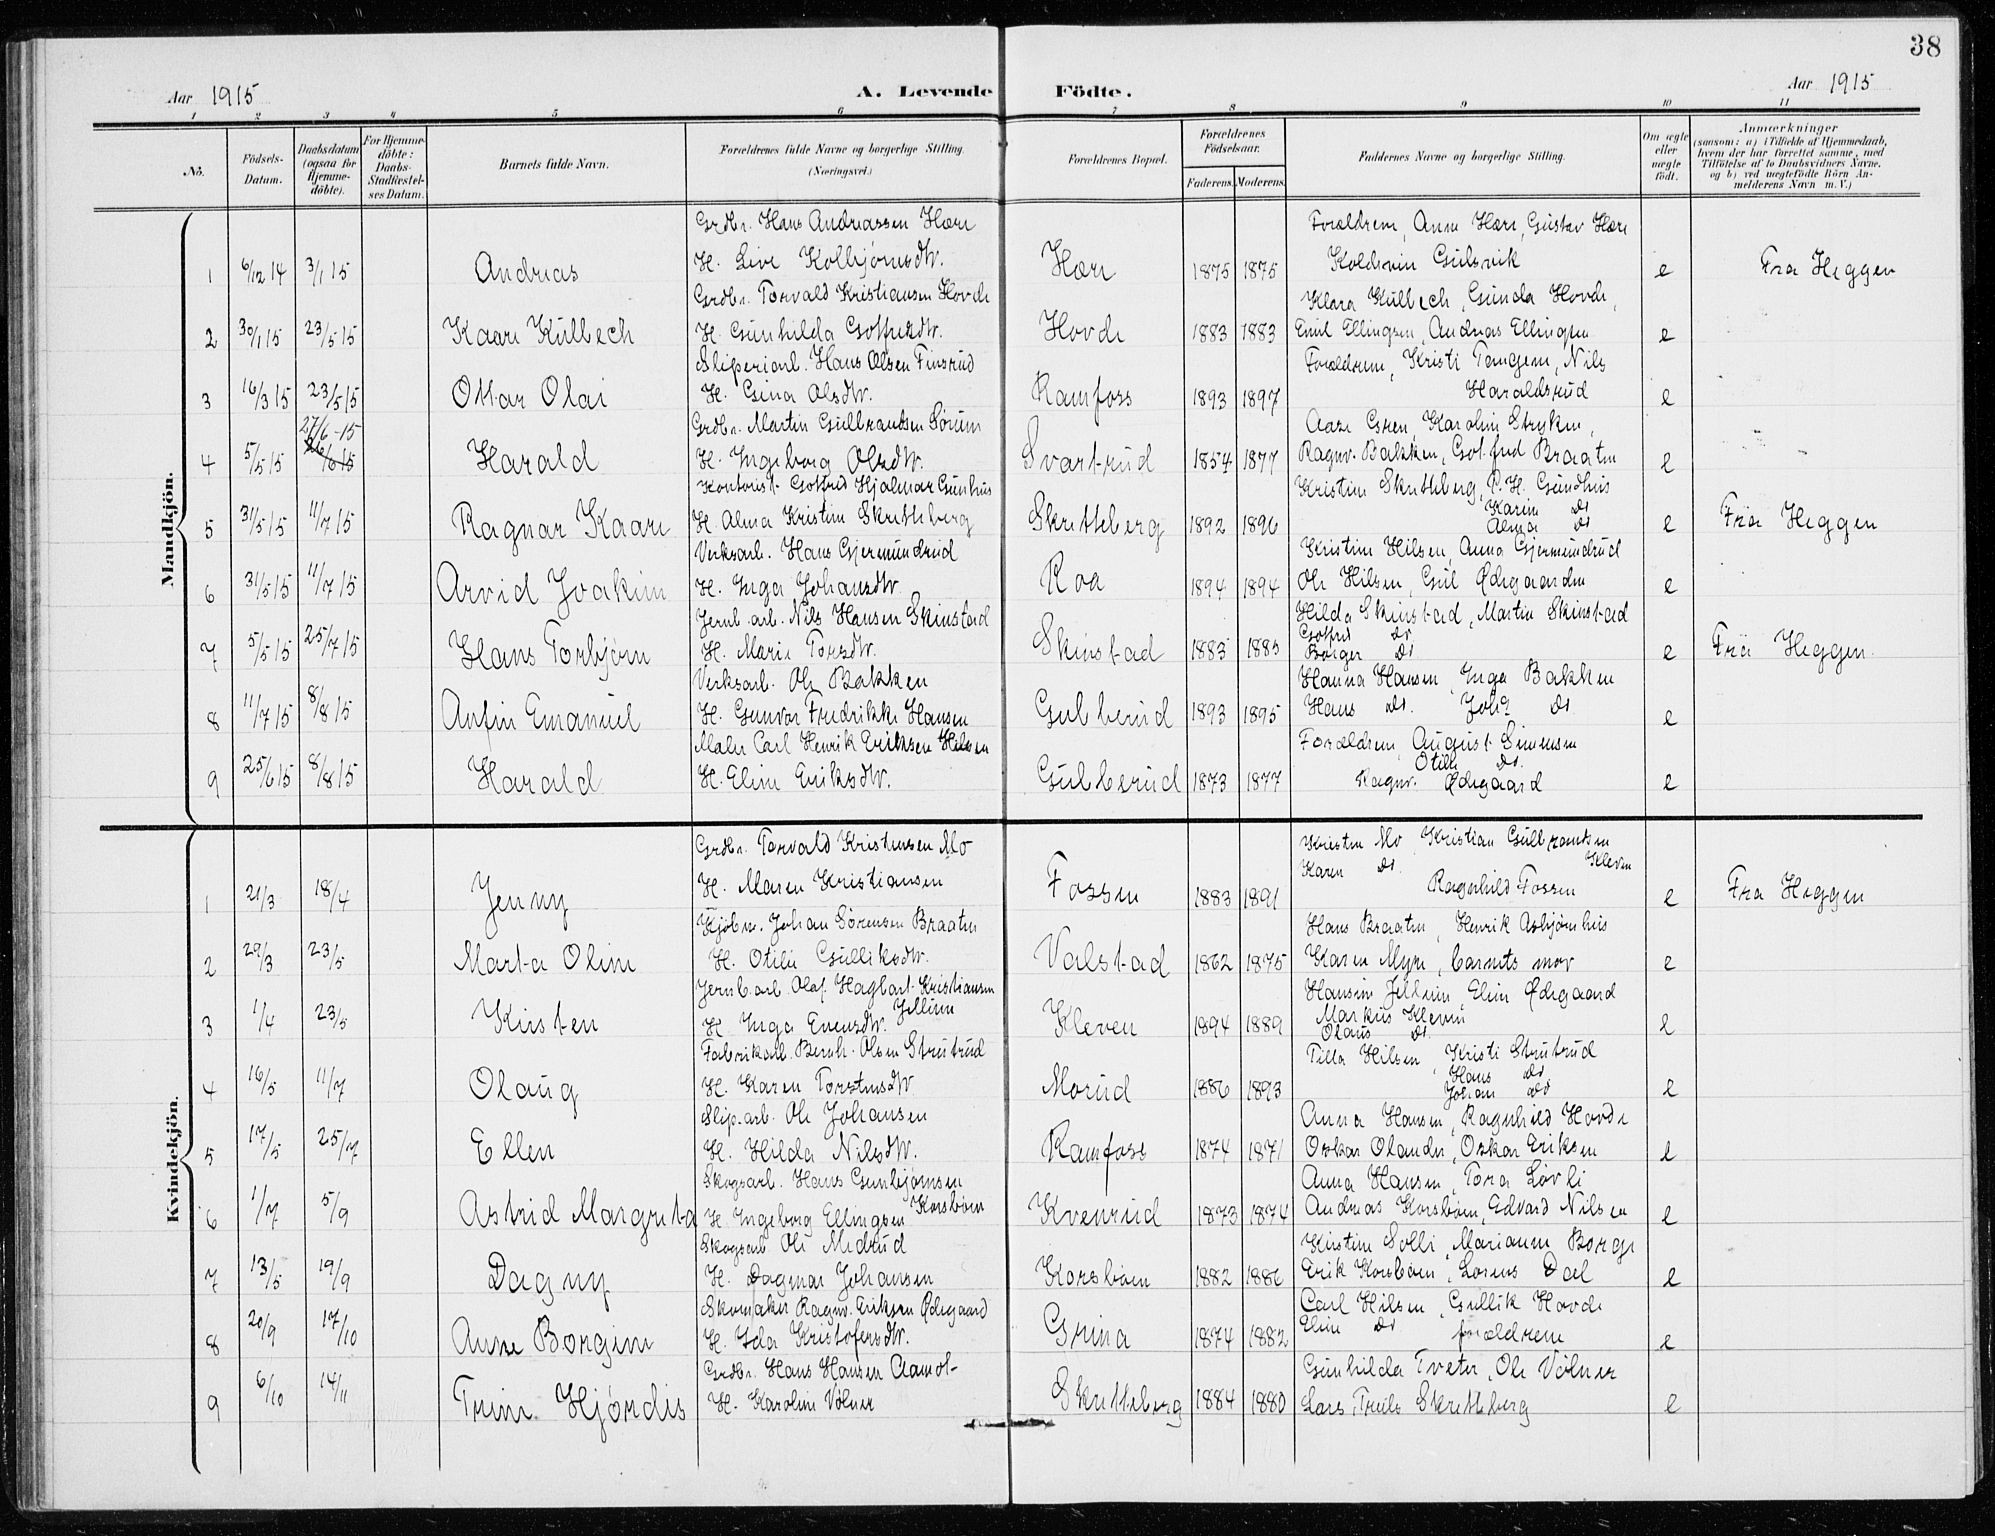 38
Aar 1915 A. Levende Födte. Aar 1915
1 2 3 4 5 6 7 8 9 10 11
Nô. Födsels-Datum. Daabsdatum (ogsaa for Hjemme-döbte). For Hjemme-döbte: Daabs-Stadfæstel-ses Datum. Barnets fulde Navn. Forældrenes fulde Navne og borgerlige Stilling. (Næringsvei.) Forældrenes Bopæl. Forældrenes Födselsaar. Faderens. Moderens. Faddernes Navne og borgerlige Stilling. Om ægte eller uægte födt. Anmærkninger (saasom: a) i Tilfælde af Hjemmedaab, hvem der har forrettet samme, med Tilföielse af to Daabsvidners Navne, og b) ved uægtefödte Börn An-melderens Navn m. V.)
Mandkjön.
Grdbr. Hans Andreassen Hære Forældrene, Anne Hære, Gustav Hære
1 6/12 14 3/1 15 Andreas H. Live Kolbjørnsdtr. Hære 1875 1875 Koldevin Gulsvik e Fra Heggen
Grdbr. Torvald Kristiansen Hovde Klara Kulbech, Gunda Hovde,
2 30/1 15 23/5 15 Kaare Kulbech H. Gunhilda Gotfredsdtr. Hovde 1883 1883 Emil Ellingsen, Andreas Ellingsen e
Sliperiarb. Hans Olsen Finsrud Forældrene, Kristi Tangen, Nils
3 16/3 15 23/5 15 Ottar Olai H. Gina Olsdtr. Ramfoss 1893 1897 Haraldsrud e
27/6-15 Grdbr. Martin Gulbrandsen Sørum Aase Gren, Karoline Stryken,
4 5/5 15 26/6 15 Harald H. Ingeborg Olsdtr. Svartrud 1854 1877 Ragnv. Bakken, Gotfred Braaten e
Kontorist Gotfred Hjalmar Gunhus Kristine Skretteberg, P.H. Gundhus
5 31/5 15 11/7 15 Ragnar Kaare H. Alma Kristine Skretteberg Skretteberg 1892 1896 Karine Do Alma Do e Fra Heggen
Verksarb. Hans Gjermundrud Kristine Hilsen, Anna Gjermundrud
6 31/5 15 11/7 15 Arvid Joakim H. Inga Johansdtr. Roa 1894 1894 Ole Hilsen, Gul Ødegaarden e
Jernb. arb. Nils Hansen Skinstad Hilda Skinstad, Martin Skinstad
7 5/5 15 25/7 15 Hans Torbjørn H. Marie Torsdtr. Skinstad 1883 1885 Gotfred Do Borger Do e Fra Heggen.
Verksarb. Ole Bakken Hanna Hansen, Inga Bakken
8 11/7 15 8/8 15 Anfin Emanuel H. Gunvor Fredrikke Hansen Gulberud 1893 1895 Hans Do. Do e
Maler Carl Henrik Eriksen Hilsen Forældrene, August Simensen
9 25/6 15 8/8 15 Harald H. Eline Eriksdtr. Gulberud 1873 1877 Otilie Do. Ragnv. Ødegaard e
Kvindekjön.
Grdbr. Torvald Kristensen Mo Kristen Mo, Kristian Gulbrandsen Kleven
1 21/3 18/4 Jenny H. Maren Kristiansen Fossen 1883 1891 Karen Do. Ragnhild Fossen e Fra Heggen
Kjøbm. Johan Sørensen Braaten Hans Braaten, Henrik Asbjørnhus
2 29/3 23/5 Marta Oline H. Otilie Gulliksdtr. Valstad 1862 1875 Karen Myre, barnets mor e
Jernb. arb. Olaf Hagbart Kristiansen Jellum Hansine Jellum, Eline Ødegaard
3 1/4 23/5 Kirsten H. Inga Evensdtr. Kleven 1894 1889 Markus Kleven Olaus Do. e
Fabrikarb. Bernh. Olsen Strutrud Tilla Hilsen, Kristi Strutrud
4 16/5 11/7 Olaug H. Karen Torstensdtr. Morud 1886 1893 Hans Do Johan Do e
Slip.arb. Ole Johansen Anna Hansen, Ragnhild Hovde
5 17/5 25/7 Ellen H. Hilda Nilsdtr. Ramfoss 1874 1871 Oskar Olander, Oskar Eriksen e
Skogsarb. Hans Gunbjørnsen Korsbøen Anna Hansen, Tora Løvli
6 1/7 5/9 Astrid Margreta H. Ingeborg Ellingsen Kvenrud 1873 1874 Andreas Korsbøen, Edvard Nilsen e
Skogsarb. Ole Medrud Kirstine Solli, Marianne Borge
7 13/5 19/9 Dagny H. Dagmar Johansen Korsbøen 1882 1886 Erik Korsbøen, Lorens Dal e
Skomaker Ragnv. Eriksen Ødegaard Carl Hilsen, Gullik Hovde
8 20/9 17/10 Anne Borgine H. Ida Kristofersdtr. Grina 1874 1882 Eline Do forældrene e
Grdbr. Hans Hansen Aamot Gunhilda Tveter, Ole Vølner
9 6/10 14/11 Trine Hjørdis H. Karoline Vølner Skretteberg 1884 1880 Lars, Truls Skretteberg e